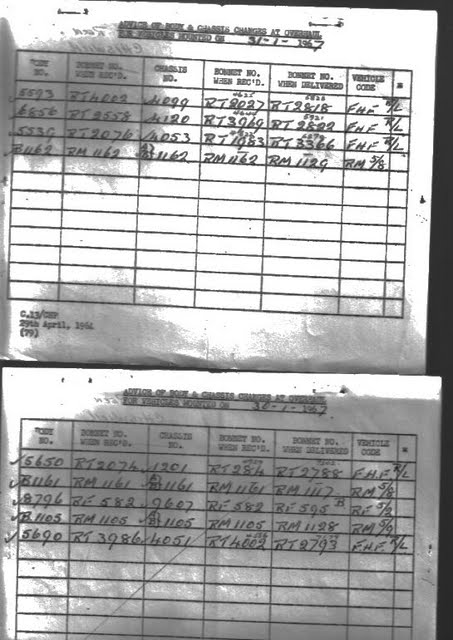 ADVICE OF BODY & CHASSIS CHANGES AT OVERHAUL
FOR VEHICLES MOUNTED ON 31-1-1967
BODY NO. BONNET NO. WHEN REC'D. CHASSIS NO. BONNET NO. WHEN REC'D. BONNET NO. WHEN DELIVERED VEHICLE CODE *
5593 RT4002 4099 RT2027 RT2818 FHF R/L
6856 RT2558 4120 RT3969 RT2822 FHF R/L
5530 RT2076 4053 RT1983 RT3366 FHF R/L
B1162 RM1162 A/B1162 RM1162 RM1129 RM 5/8
C.13/CHP
29th April, 1964
(79)
ADVICE OF BODY & CHASSIS CHANGES AT OVERHAUL
FOR VEHICLES MOUNTED ON 30-1-1967
BODY NO. BONNET NO. WHEN REC'D. CHASSIS NO. BONNET NO. WHEN REC'D. BONNET NO. WHEN DELIVERED VEHICLE CODE *
5650 RT2074 1201 RT284 RT2788 FHF R/L
B1161 RM1161 A/B1161 RM1161 RM1117 RM 5/8
8796 RF582 9607 RF582 RF595 B RF 5/2
B1105 RM1105 A/B1105 RM1105 RM1128 RM
5690 RT3986 4051 RT4002 RT2793 FHF R/L